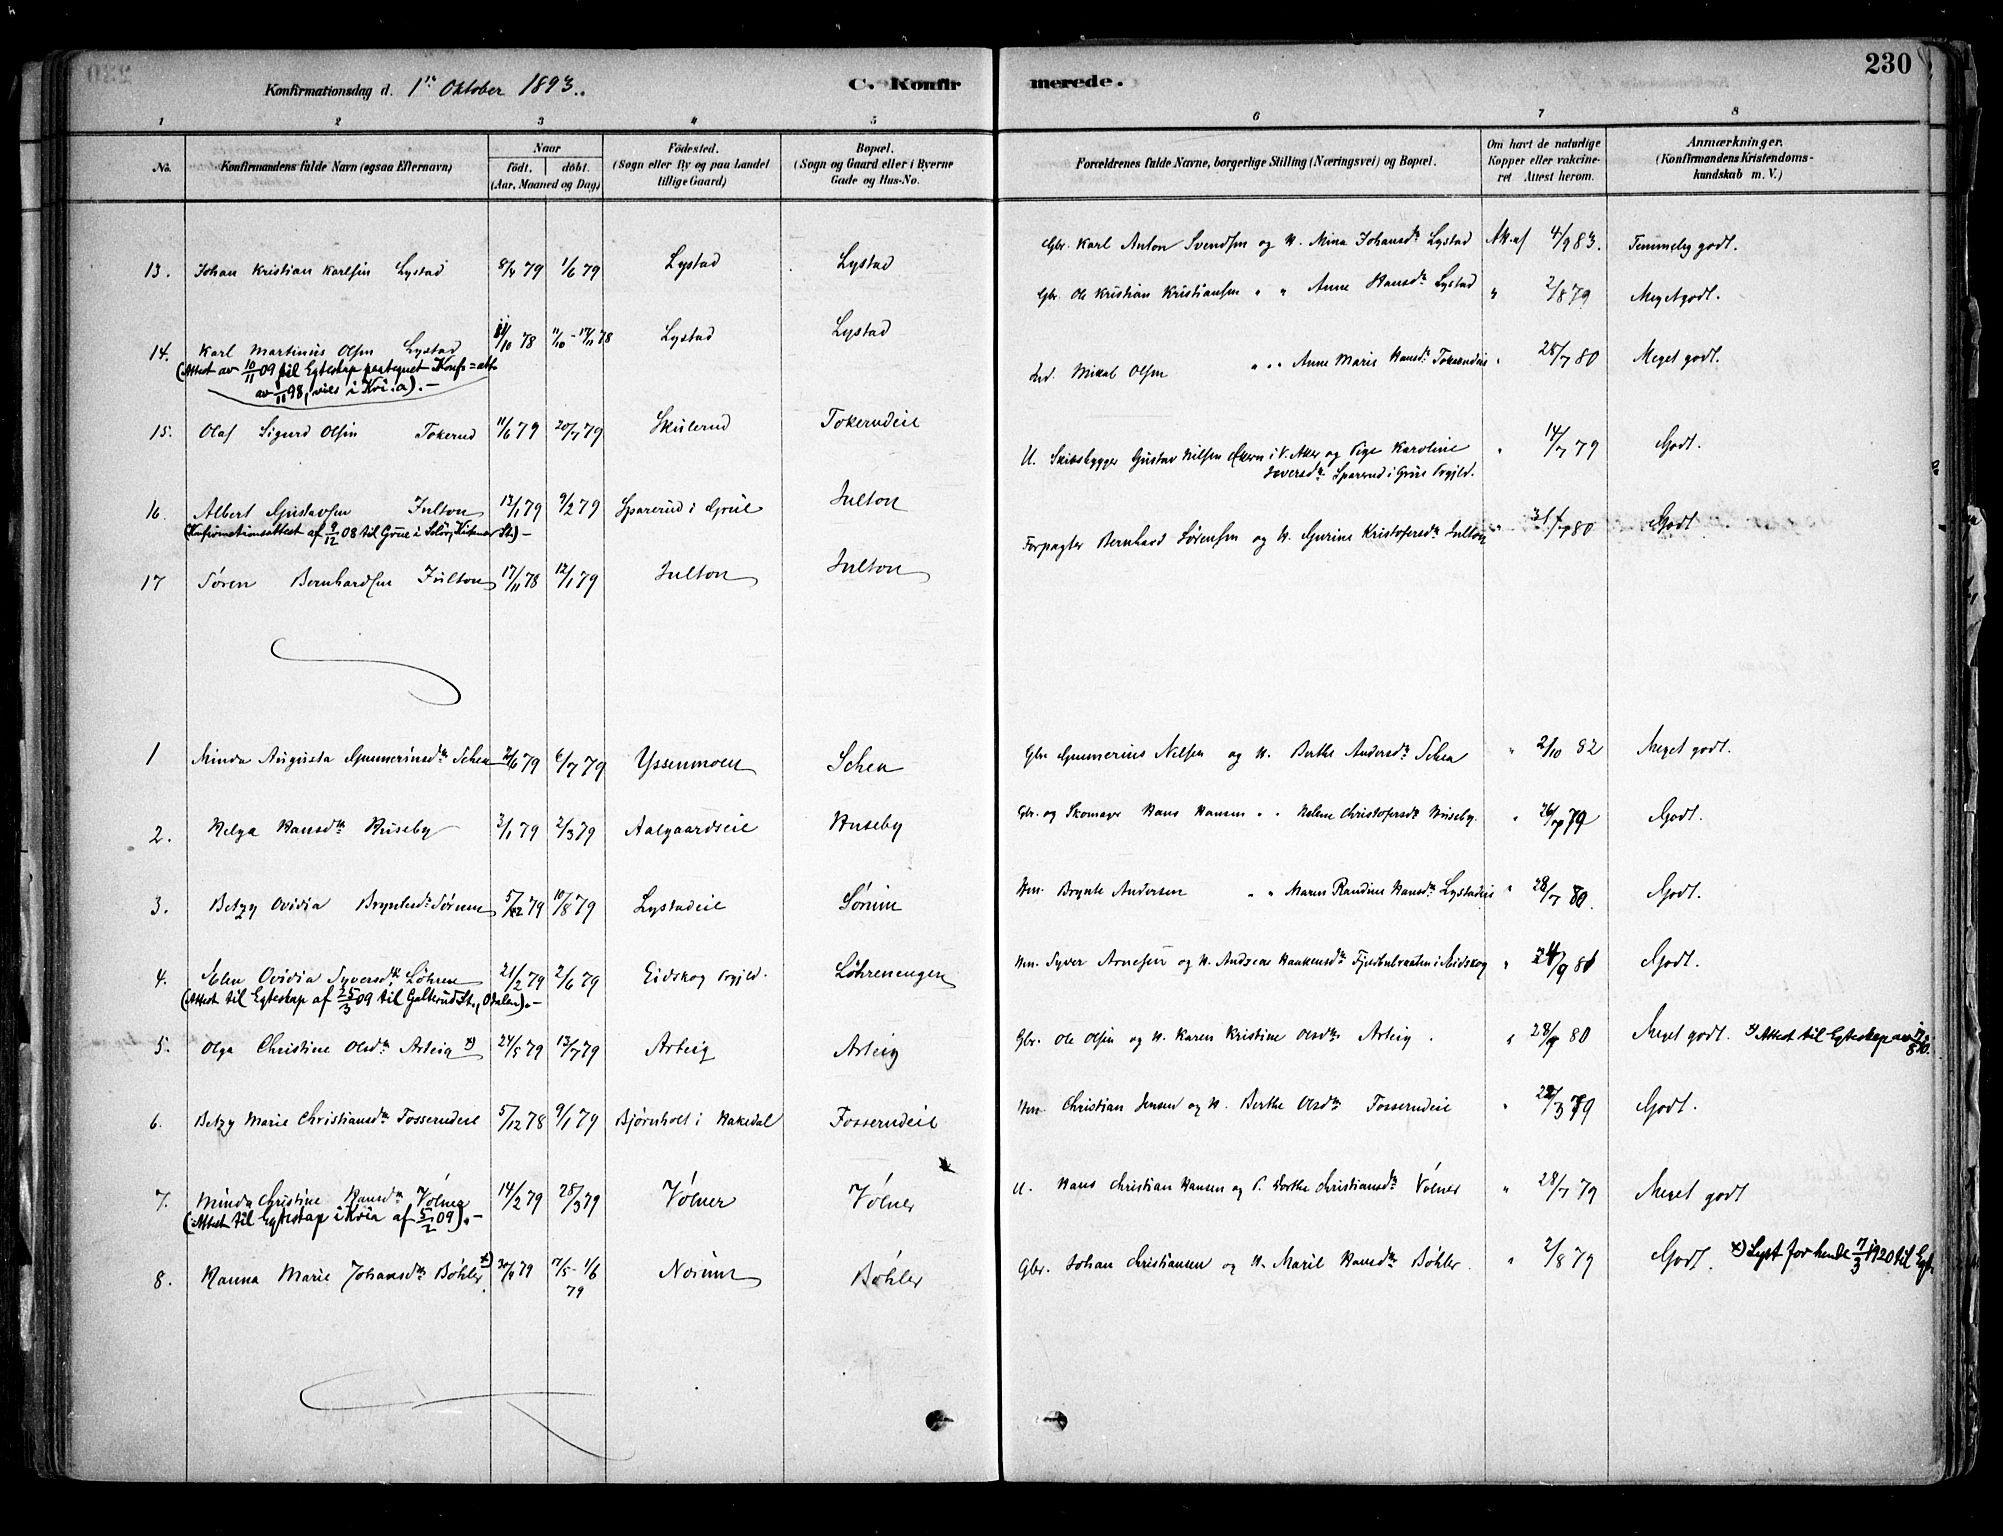 230
Konfirmationsdag d. 1ste Oktober 1893. C. Konfirmerede.
1 2 3 4 5 6 7 8
No. Konfirmandens fulde Navn (ogsaa Efternavn) Naar født. døbt. (Aar, Maaned og Dag) Fødested. (Sogn eller By og paa Landet tillige Gaard) Bopæl. (Sogn og Gaard eller i Byerne Gade og Hus-No. Forældrenes fulde Navne, borgerlige Stilling (Næringsvei) og Bopæl. Om havt de naturlige Kopper eller vakcineret Attest herom. Anmærkninger. (Konfirmandens Kristendomskundskab m. V.)
13. Johan Kristian Karlsen Lystad 8/4 79 1/6 79 Lystad Lystad Gbr. Karl Anton Svendsen og H. Mina Johansdr Lystad Ak. af 4/9 83. Temmelig godt.
14. Karl Martinius Olsen Lystad 11/10 78 11/10 - 17/11 78 Lystad Lystad Gbr. Ole Kristian Kristiansen " " Anne Hansdr Lystad " 2/8 79 Meget godt.
(Attest av 10/11 09 til Egteskap paategnet Konf=att.
av 1/11 98, vies i Kri.a).-
15. Olaf Sigurd Olsen Tokerud 11/6 79 20/7 79 Skulerud Tokerudeie Ind. Mikal Olsen " " " Anne Marie Hansdr Tokerudeie " 28/7 80 Meget godt.
16. Albert Gustavsen Julton 13/1 79 9/2 79 Sparerud i Grue Julton U. Skibsbygger Gustav Nilsen Ekern i V. Aker og Pige Karoline " 14/7 79 Godt.
Iversdr Sparerud i Grue Prgjld.
(Konfirmationsattest af 9/12 08 til Grue i Solør, Kirkenær St.) -
17 Søren Bernhardsen Julton 17/11 78 12/1 79 Julton Julton Forpagter Bernhard Sørensen og H. Gurine Kristofersdr Julton " 31/7 80 Godt
1 Minda Augusta Gunneriusdr Schea 2/6 79 6/7 79 Yssenmoen Schea Gbr Gunnerius Nilsen og H. Berthe Andersdr Schea " 2/10 82 Meget godt.
2. Helga Hansdr Huseby 3/1 79 2/3 79 Aalgaardseie Huseby Gbr. og Skomager Hans Hansen " " Helene Christofersdr Huseby. " 26/7 79 Godt.
3. Betzy Ovidia Bryntesdr Sørum 5/ 79 10/8 79 Lystadeie Sørum Hm. Brynte Andersen " " Maren Randine Hansdr Lystadeie " 28/7 80. Godt.
4. Elen Ovidia Syversdr Løhren 21/2 79 2/6 79 Eidskog Prgjld. Løhrenengen Hm. Syver Arnesen og H. Andrea Haakensdr i Eidskog " 24/9 81 Godt.
(Attest til Egteskap af 25/3 09 til Galterud St., Odalen).-
5. Olga Christine Olsdr Arteig x) 24/5 79 13/7 79 Arteig Arteig Gbr. Ole Olsen og H. Karen Kristine Olsdr Arteig. " 28/9 80 Meget godt. x) Attest til Egteskap av
6. Betzy Marie Christiansdr Fosserudeie 5/12 78 9/1 79 Bjørnholt i Hakedal Fosserudeie Hm. Christian Jensen og H. Berthe Olsdr Fosserudeie " 22/3 79 Godt.
7. Minda Christine Hansdr Vølner 14/2 79 28/3 79 Vølner Vølner U. Hans Christian Hansen og P. Dorthe Christiansdr Vølner " 28/7 79 Meget godt
(Attest til Egteskap i Kria af 5/2 09).-
8. Hanna Marie Johansdr Bøhler x) 30/4 79 17/5 - 1/6 79 Norum Bøhler Gbr. Johan Christiansen og H. Marie Hansdr Bøhler. " 2/8 79 Godt. x) Lyst for hende 7/3 1920 til Egt.